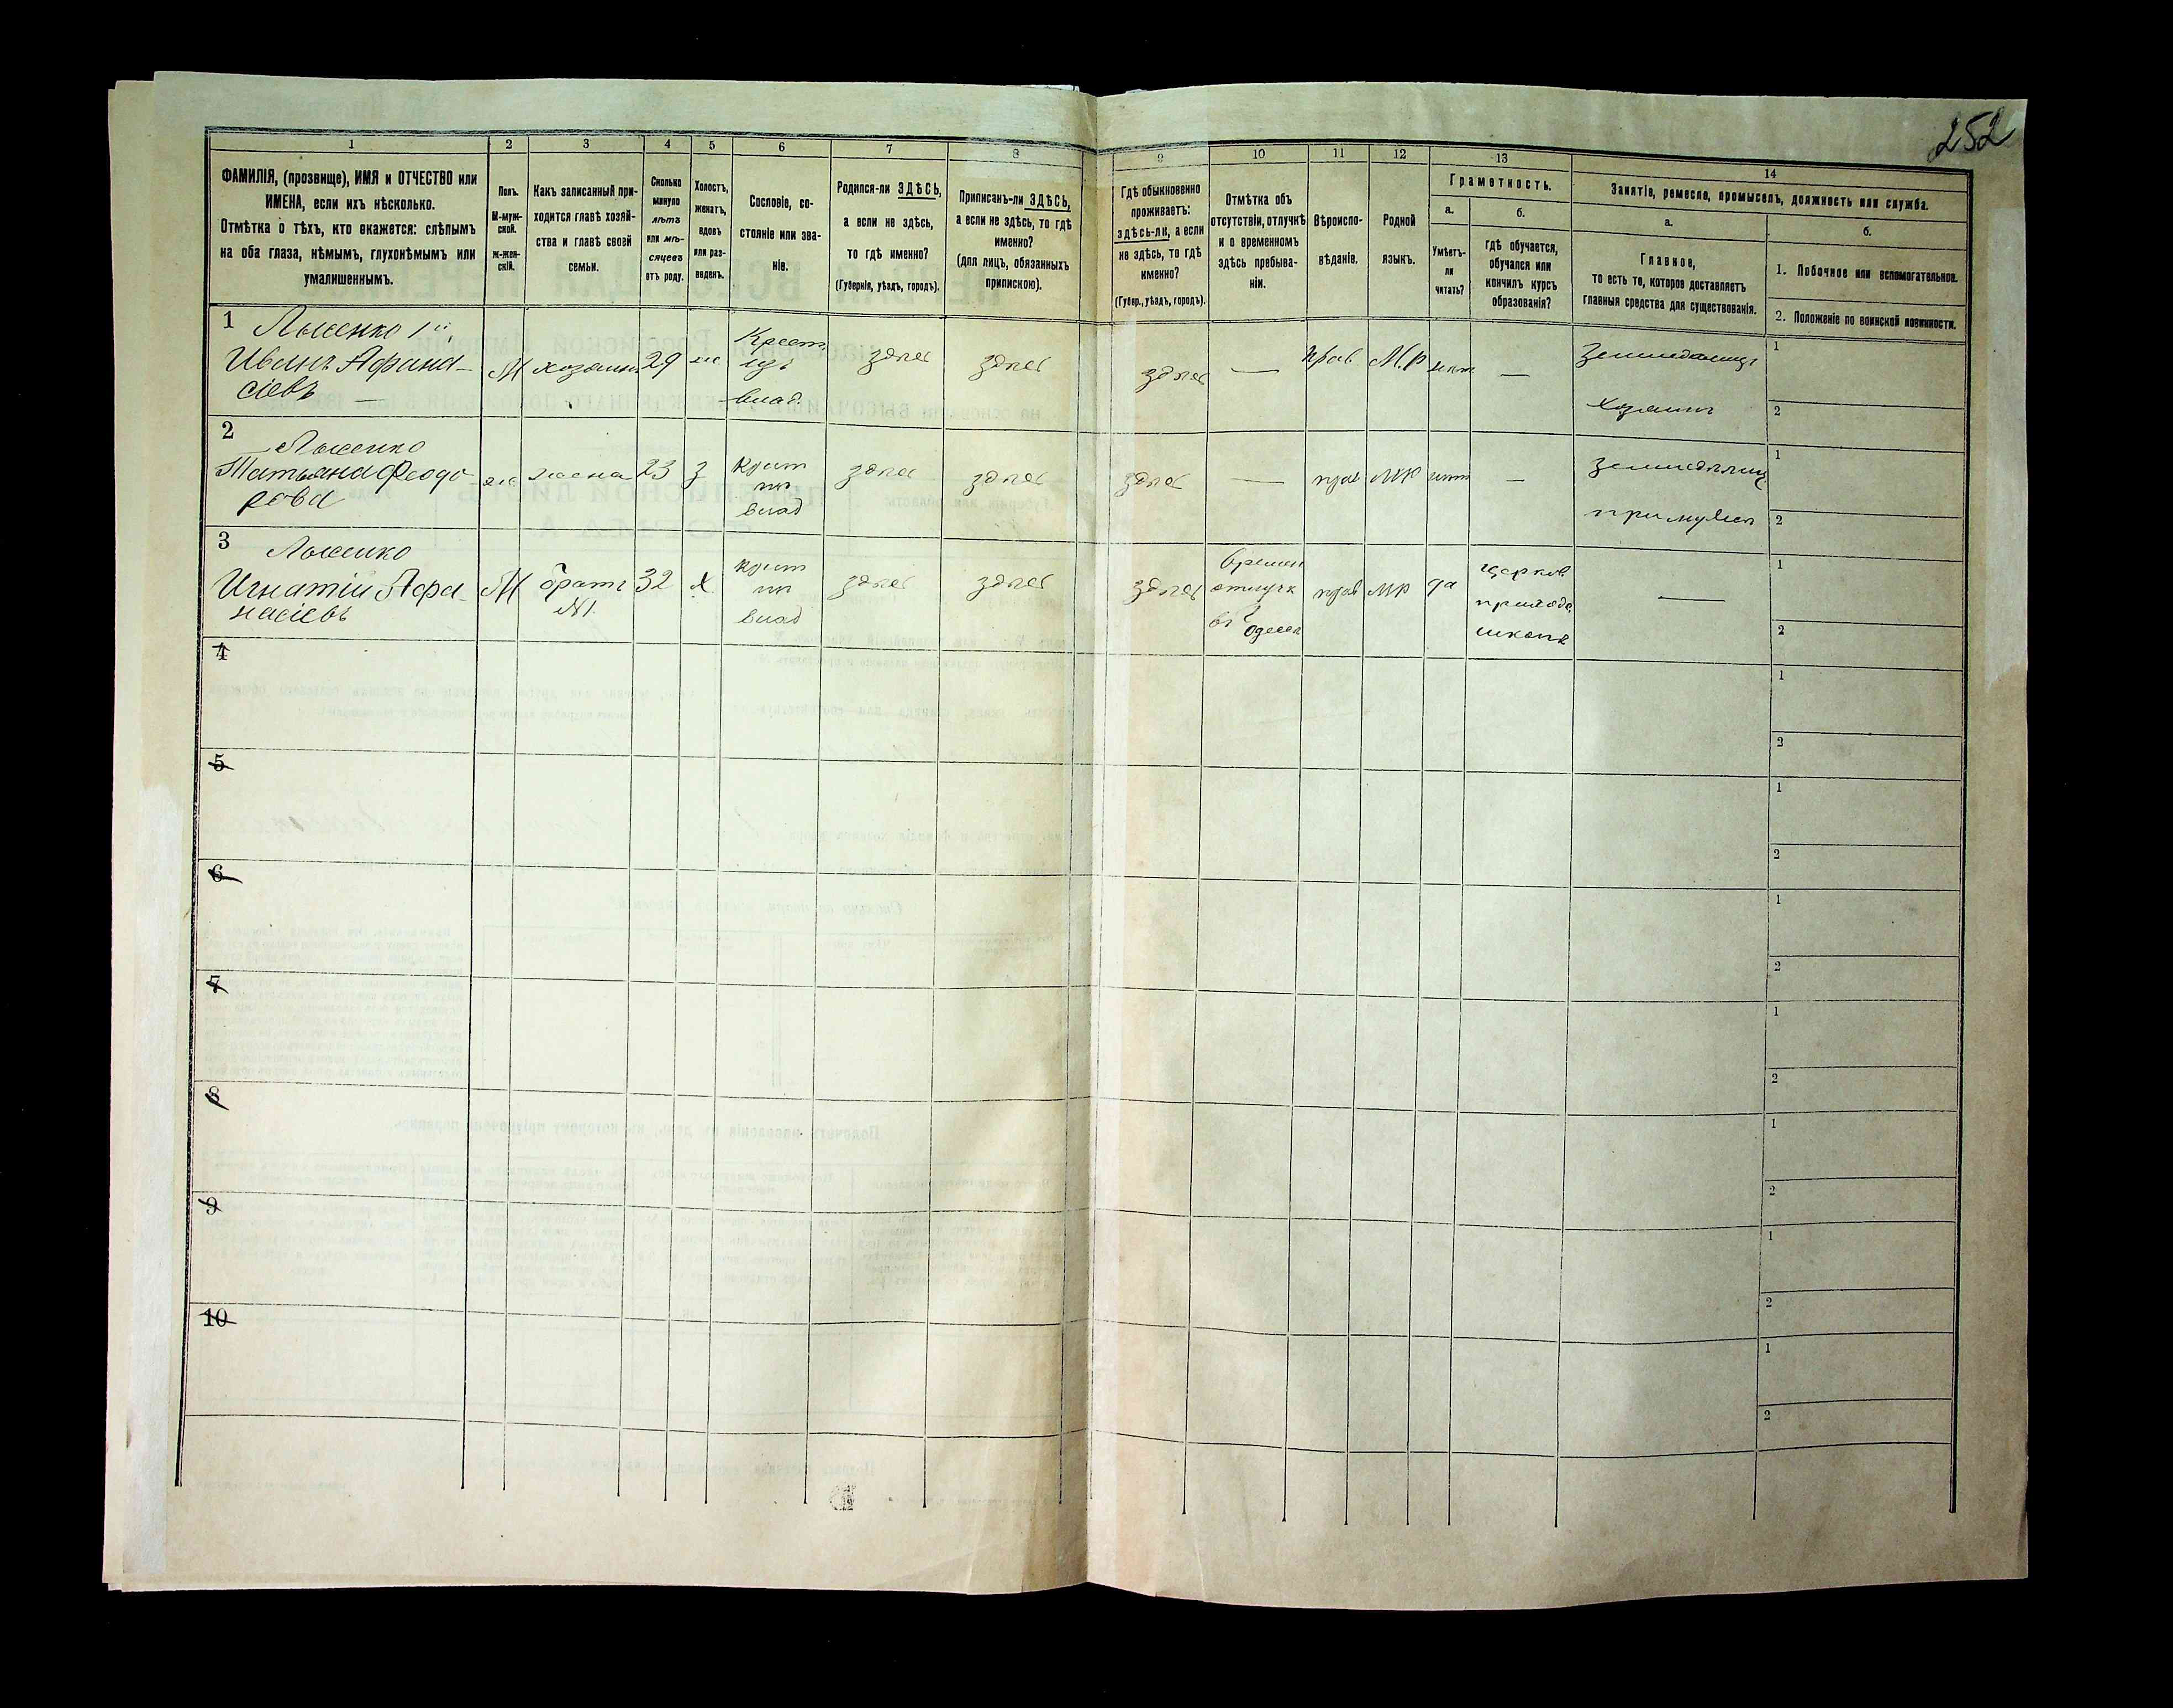 252
1
2
3
4
5
6
7
8
9
10
11
12
13
14
ФАМИЛІЯ, (прозвище), ИМЯ и ОТЧЕСТВО или
ИМЕНА, если ихъ нѣсколько.
Отмѣтка о тѣхъ, кто окажется: слѣпымъ
на оба глаза, нѣмымъ, глухонѣмымъ или
умалишеннымъ.
Полъ.
М-муж-
ской.
ж-жен-
скій.
Какъ записанный при-
ходится главѣ хозяй-
ства и главѣ своей
семьи.
Сколько
минуло
лѣтъ
или мѣ-
сяцевъ
отъ роду.
Холостъ,
женатъ,
вдовъ
или раз-
веденъ.
Сословіе, со-
стояніе или зва-
ніе.
Родился-ли ЗДѢСЬ,
а если не здѣсь,
то гдѣ именно?
(Губернія, уѣздъ, городъ).
Приписанъ-ли ЗДѢСЬ,
а если не здѣсь, то гдѣ
именно?
(для лицъ, обязанныхъ
припискою).
Гдѣ обыкновенно
проживаетъ:
здѣсь-ли, а если
не здѣсь, то гдѣ
именно?
(Губер., уѣздъ, городъ).
Отмѣтка объ
отсутствіи, отлучкѣ
и о временномъ
здѣсь пребыва-
ніи.
Вѣроиспо-
вѣданіе.
Родной
языкъ.
Грамотность.
а.
Умѣетъ-
ли
читать?
б.
гдѣ обучается,
обучался или
кончилъ курсъ
образованія?
Занятіе, ремесло, промыселъ, должность или служба.
а.
Главное,
то есть то, которое доставляетъ
главныя средства для существованія.
б.
1. Побочное или вспомогательное.
2. Положеніе по воинской повинности.
1
Иванъ Афана-
сіевъ
М хозяинъ 29 Крест. влад.
здѣсь здѣсь здѣсь — прав. М.р нѣтъ —
хозяинъ
1
2
2
Татьяна Феодо
рова
ж жена 23 з крест влад
здѣсь здѣсь здѣсь — прав мр нѣтъ —
1
2
3
Игнатій Афа
насіевъ
М братъ №1 32 х крест влад
здѣсь здѣсь здѣсь
времен отлучк въ Одесса
прав мр да
церков приход. школѣ
—
1
2
4
1
2
5
1
2
6
1
2
7
1
2
8
1
2
9
1
2
10
1
2